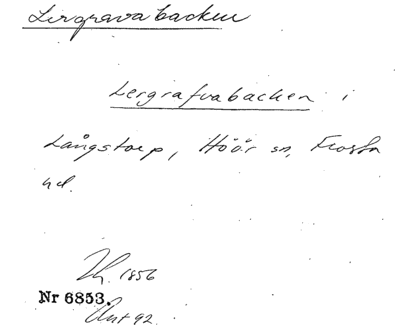 Lergravabacken
Lergrafvabacken i
Långstorp, Höör sn, Frosta
hd.
1856
Nr 6853.
Ant 92.